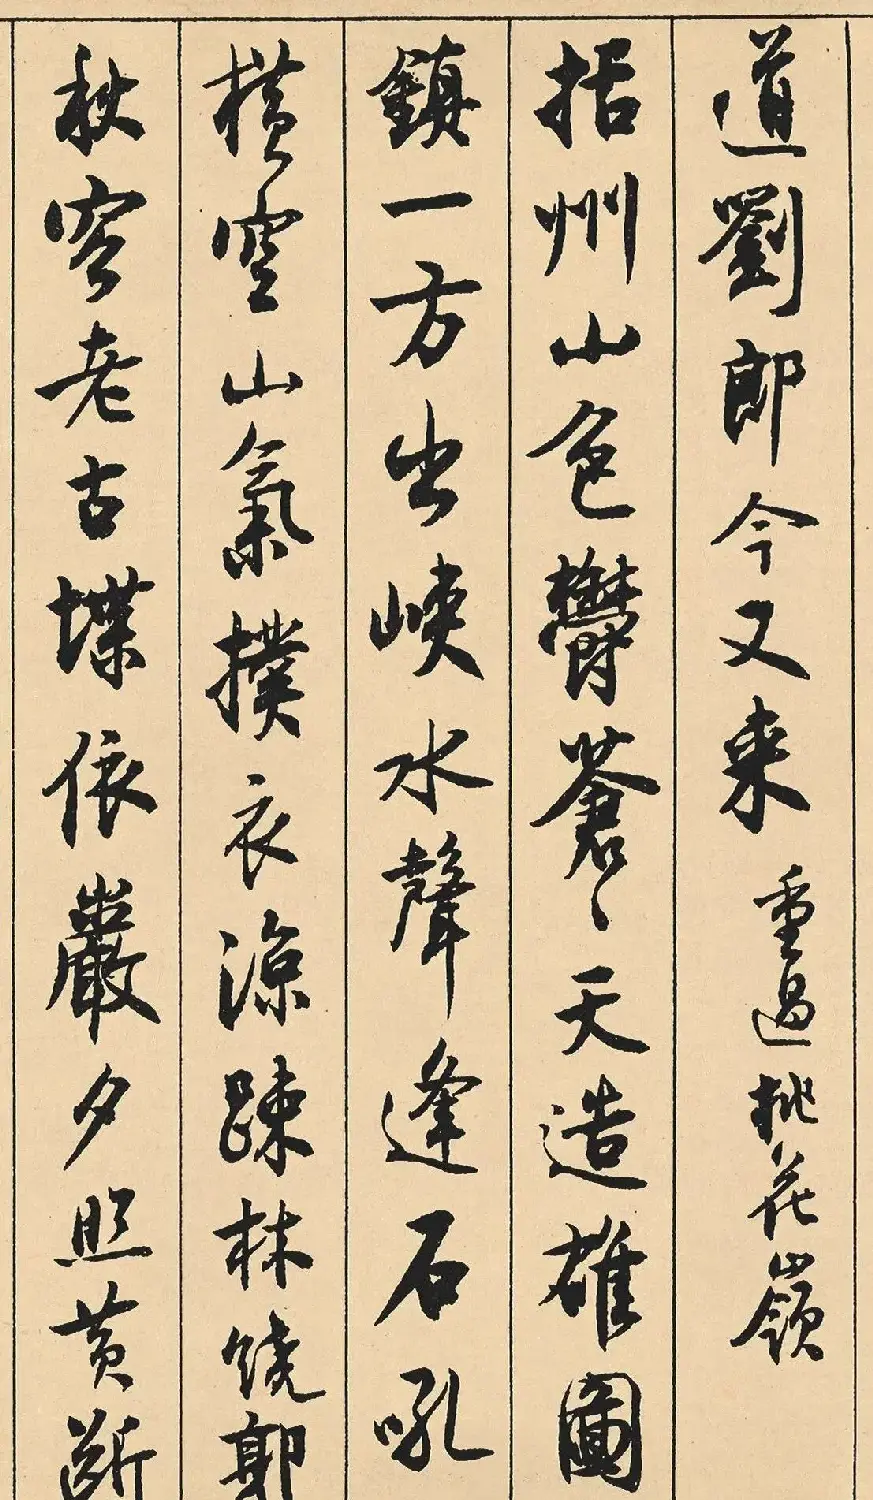 道劉郎今又来 重過桃花嶺
括州山色鬱蒼〻天造雄圖
鎮一方出峽水聲逢石吼
横空山氣撲衣涼踈林饒郭
秋容老古堞依巖夕照黄斷